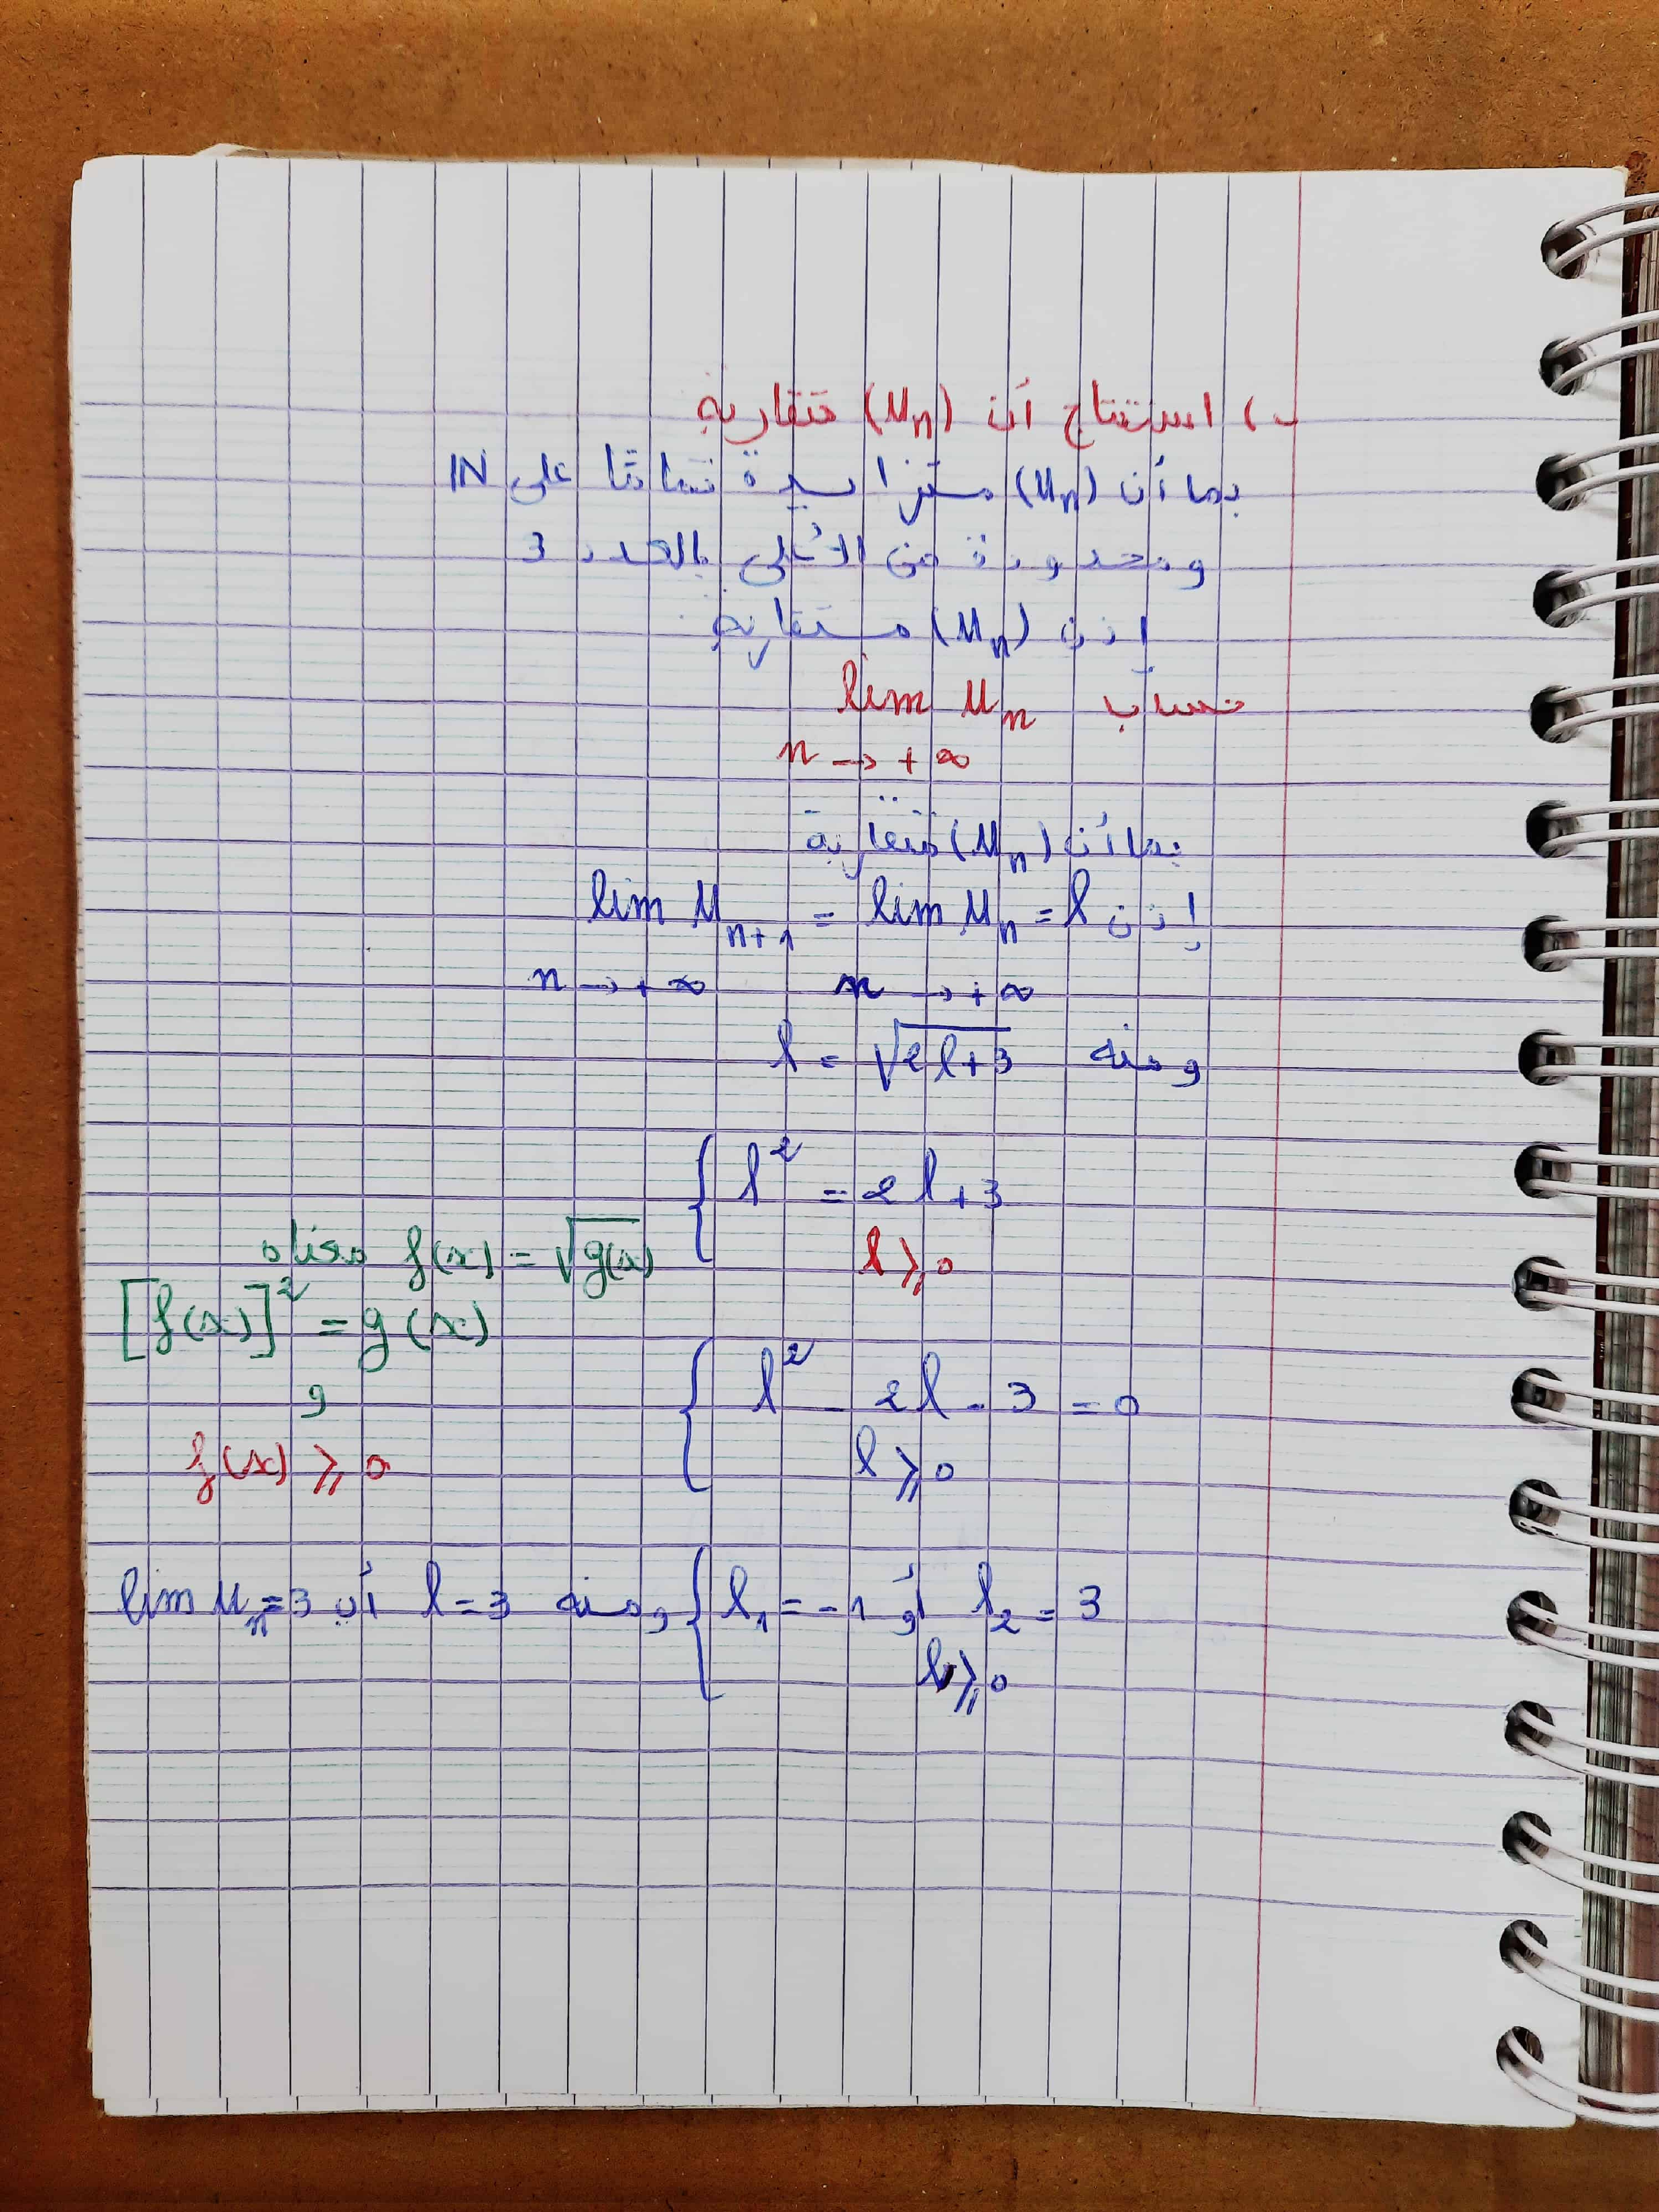 ب) استنتاج أن (Un) متقاربة
بما أن (Un) متزايدة تماما على IN
ومحدودة من الأعلى بالعدد 3
إذن (Un) متقاربة
حساب lim Un
n → +∞
بما أن (Un) متقاربة
إذن lim Un+1 = lim Un = l
n → +∞ n → +∞
ومنه l = √(2l+3)
{ l² = 2l+3
l ⩾ 0
f(x) = √g(x) معناه
[f(x)]² = g(x)
و
f(x) ⩾ 0
{ l² - 2l - 3 = 0
l ⩾ 0
{ l₁ = -1 أو l₂ = 3 ومنه l = 3 أي lim Un = 3
l ⩾ 0